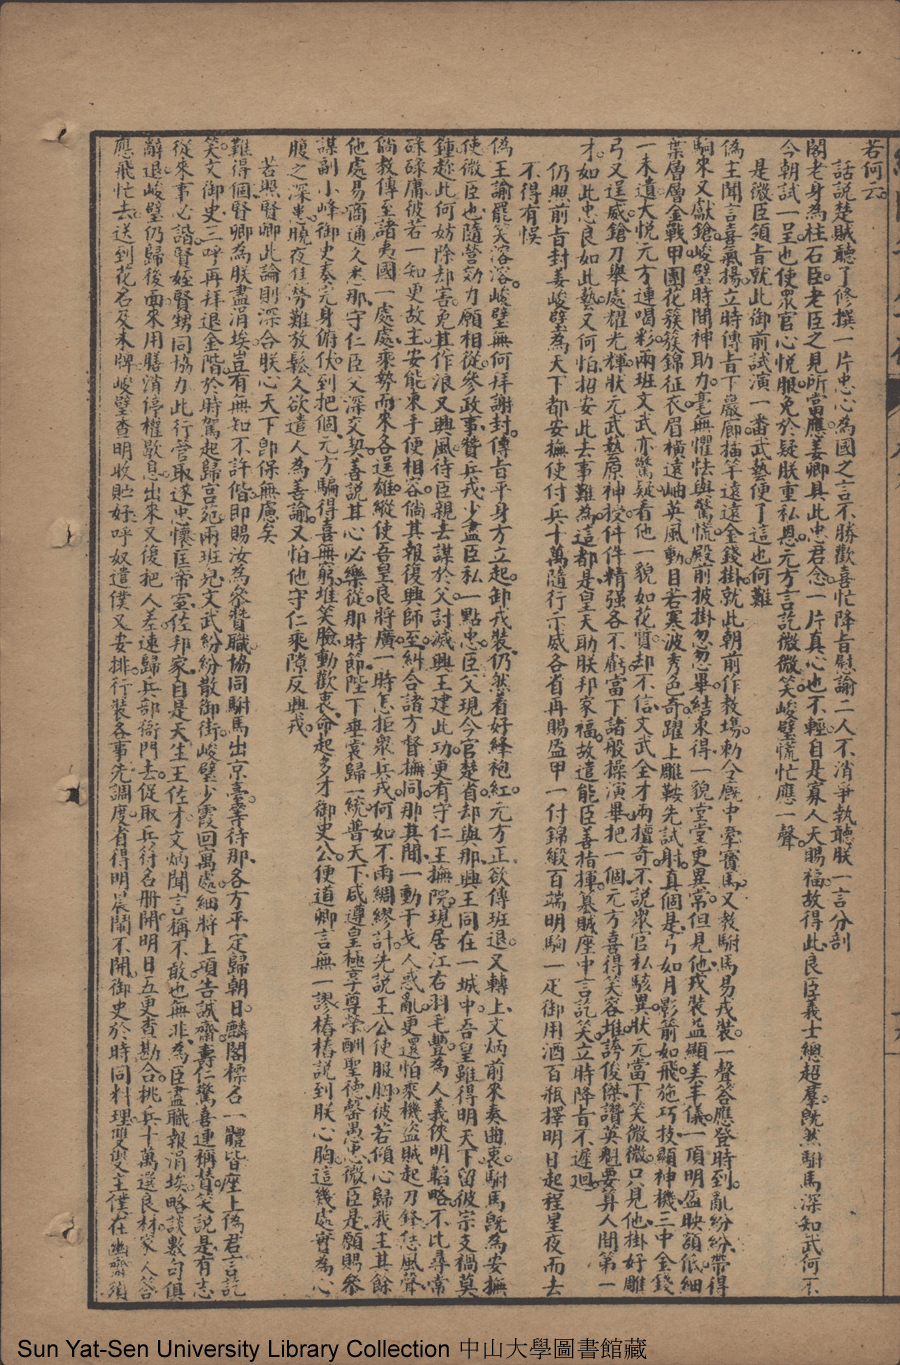 若何云
話說楚賊聽了修撰一片忠心為國之言不勝歡喜忙降旨慰諭二人不消爭執聽朕一言分剖
閣老身為柱石臣老臣之見所當應姜卿具此忠君念一片真心也不輕自是寡人天賜福故得此良臣義士總超羣既然駙馬深知武何不
今朝試一呈也使眾官心悅服免於疑朕重私恩元方言訖微微笑峻璧慌忙應一聲
是微臣領旨就此御前試演一番武藝便了這也何難
偽主聞言喜氣揚立時傳旨下嚴廊插竿遠遠金錢掛就此朝前作教場勅令廐中牽寶馬又教駙馬易戎裝一聲答應登時到亂紛紛帶得
駒來又獻鎗峻璧時聞神助力毫無懼怯與驚慌殿前披掛忽忽畢結束得一貌堂堂更異常但見他戎裝益顯美丰儀一頂明盔映額低細
葉層層金戰甲團花簇簇錦征衣眉橫遠岫英風動目若寒波秀色奇躍上雕鞍先試射真個是弓如月影箭如飛施巧技顯神機三中金錢
一未遺大悅元方連喝彩兩班文武亦驚疑看他一貌如花質却不信文武全才兩擅奇不說眾官私駭異狀元當下笑微微只見他掛好雕
弓又逞威鎗刀舉處耀光輝狀元武藝原神授件件精強各不虧當下諸般操演畢把一個元方喜得笑容堆誇俊傑讚英魁要算人間第一
才如此忠良如此藝又何怕招安此去事難為這都是皇天助朕邦家福故遣能臣善指揮墓賊座中言訖笑立時降旨不遲迴
仍照前旨封姜峻璧為天下都安撫使付兵十萬隨行示威各省再賜盔甲一付錦緞百端明駒一疋御用酒百瓶擇明日起程星夜而去
不得有悞
偽王諭罷笑溶溶峻璧無何拜謝封傳旨平身方立起卸戎裝仍然着好絳袍紅元方正欲傳班退又轉上文炳前來奏曲衷駙馬既為安撫
使微臣也隨營効力願相從參政事贊兵戎少盡臣私一點忠臣父現今官楚省却與那興王同在一城中吾皇雖得明天下留彼宗支禍莫
鍾趂此何妨除却害免其作浪又興風待臣親去謀於父討滅興王建此功更有守仁王撫院現居江右羽毛豐為人義俠明韜略不比尋常
碌碌庸彼若一知更故主安能束手便相容倘其報復興師至糾合諸方督撫同那其間一動干戈人惑亂更還怕來機盜賊起刀鋒恁風聲
倘教傳至諸夷國一處處乘勢而來各逞雄縱使吾皇良將廣一時怎拒眾兵戎何如不雨綢繆計先說王公使服胸彼若傾心歸我主其餘
他處易商通久悉那守仁臣父深交契善說其心必樂從那時節陛下垂裳歸一統普天下咸遵皇極享尊榮酬聖德罄愚忠微臣是願賜參
謀副小峰御史奏完身俯伏到把個元方騙得喜無窮堆笑臉動歡衷命起多才御史公便道卿言無一謬樁樁說到朕心胸這幾處實為心
腹之深患曉夜焦勞難放鬆久欲遣人為善諭又怕他守仁乘隙反興戎
若興賢卿此論則深合朕心天下即保無慮矣
難得個賢卿為朕盡涓埃豈有無知不許偕即賜汝為參贊職協同駙馬出京臺等待那各方平定歸朝日麟閣標名一體皆座上偽君言訖
笑文御史三呼再拜退金階於時駕起歸宮苑兩班兒文武紛紛散御街峻璧少霞回萬處細將上項告誠齋壽仁驚喜連稱贊笑說是有志
從來事必諧賢姪賢甥同協力此行管取遂忠懷匡帝室佐邦家自是天生王佐才文炳聞言稱不敢也無非為臣盡職報涓埃略談數句俱
辭退峻璧仍歸後面來用膳消停權歇息出來又復把人差速歸兵部衙門去從取兵符名册開明日五更查勘合挑兵十萬選良材家人答
應飛忙去送到花名及木牌峻璧查明收貯好呼奴遣僕又安排行裝各事先調度省得明晨鬧不開御史於時同料理雙雙主僕在幽齋須
Sun Yat-Sen University Library Collection 中山大學圖書館藏